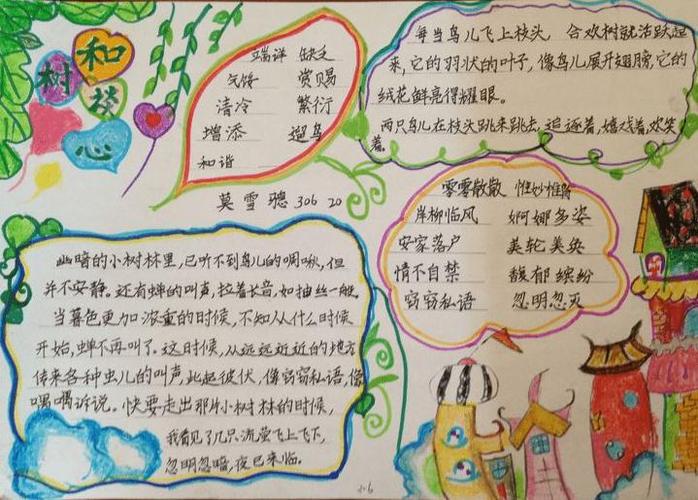 和
树 谈
心
端详 缺乏
气馁 赏赐
清冷 繁衍
增添 遛鸟
和谐
莫雪骢 306 20
每当鸟儿飞上枝头，合欢树就活跃起
来，它的羽状的叶子，像鸟儿展开翅膀，它的
绒花鲜亮得耀眼。
两只鸟儿在枝头跳来跳去，追逐着，嬉戏着，欢笑
着。
零零散散 惟妙惟肖
岸柳临风 婀娜多姿
安家落户 美轮美奂
情不自禁 馥郁缤纷
窃窃私语 忽明忽灭
幽暗的小树林里，已听不到鸟儿的啁啾，但
并不安静。还有蝉的叫声，拉着长音，如抽丝一般。
当暮色更加浓重的时候，不知从什么时候
开始，蝉不再叫了。这时候，从远远近近的地方
传来各种虫儿的叫声，此起彼伏，像窃窃私语，像
喁喁诉说。快要走出那片小树林的时候，
我看见了几只流萤飞上飞下，
忽明忽暗，夜已来临。